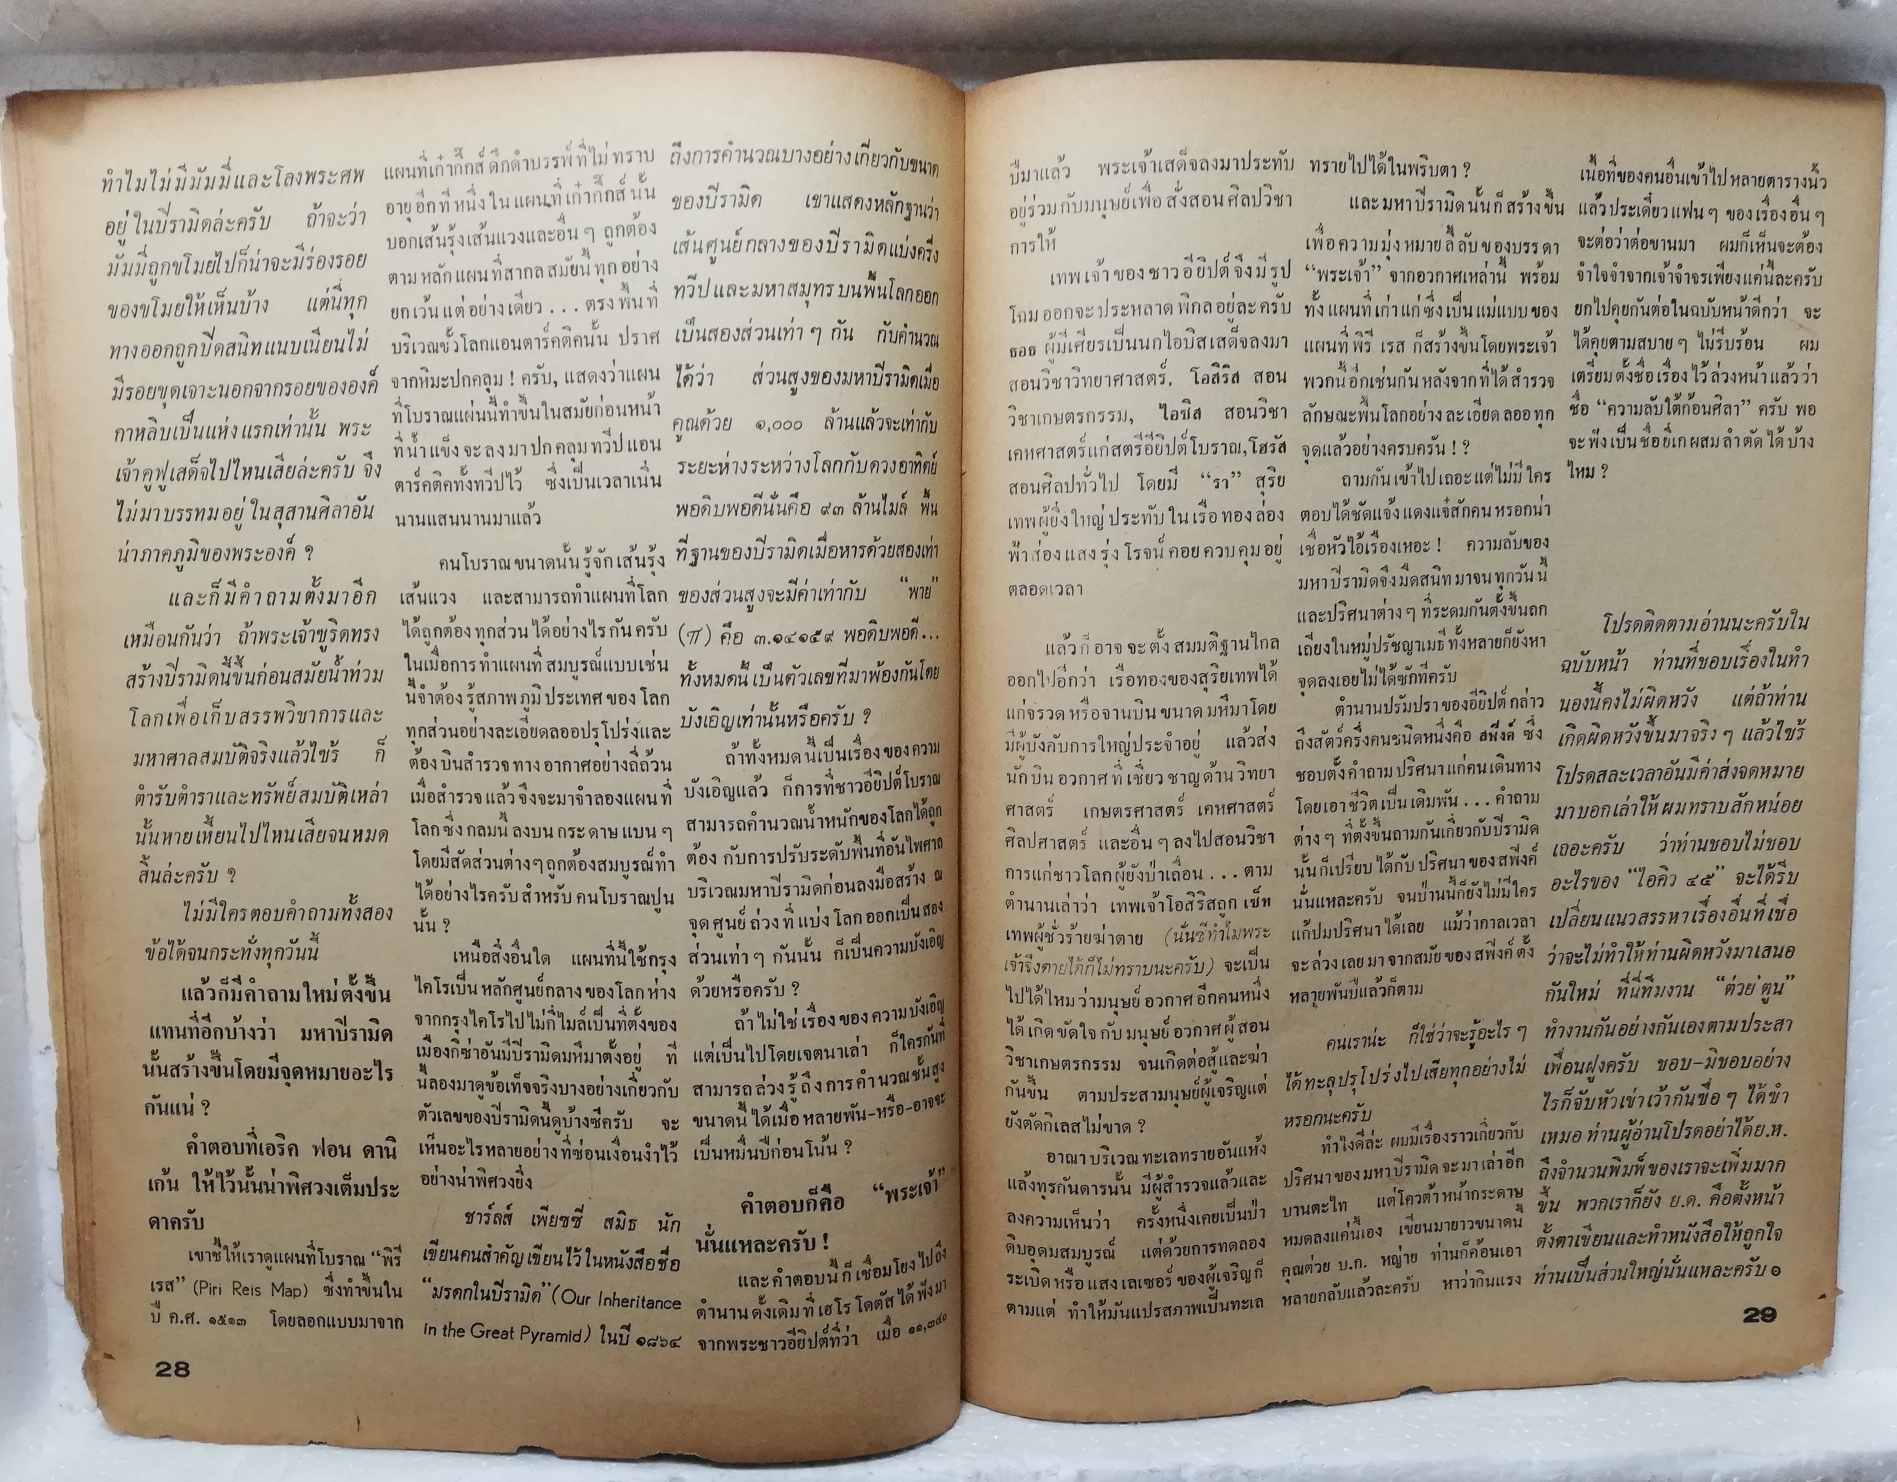 ทำไมไม่มีมัมมี่และโลงพระศพ
อยู่ในปิรามิดล่ะครับ ถ้าจะว่า
มัมมี่ถูกขโมยไปก็น่าจะมีร่องรอย
ของขโมยให้เห็นบ้าง แต่นี่ทุก
ทางออกถูกปิดสนิทแนบเนียนไม่
มีรอยขุดเจาะนอกจากรอยขององค์
กาหลิบเป็นแห่งแรกเท่านั้น พระ
เจ้าคูฟูเสด็จไปไหนเสียล่ะครับ จึง
ไม่มาบรรทมอยู่ในสุสานศิลาอัน
น่าภาคภูมิของพระองค์ ?
และก็มีคำถามตั้งมาอีก
เหมือนกันว่า ถ้าพระเจ้าซูริดทรง
สร้างปิรามิดนี้ขึ้นก่อนสมัยน้ำท่วม
โลกเพื่อเก็บสรรพวิชาการและ
มหาศาลสมบัติจริงแล้วไซร้ ก็
ตำรับตำราและทรัพย์สมบัติเหล่า
นั้นหายเหี้ยนไปไหนเสียจนหมด
สิ้นล่ะครับ ?
ไม่มีใครตอบคำถามทั้งสอง
ข้อได้จนกระทั่งทุกวันนี้
แล้วก็มีคำถามใหม่ตั้งขึ้น
แทนที่อีกบ้างว่า มหาปิรามิด
นั้นสร้างขึ้นโดยมีจุดหมายอะไร
กันแน่ ?
คำตอบที่เอริค ฟอน ดานิ
เก้น ให้ไว้นั้นน่าพิศวงเต็มประ
ดาครับ
เขาชี้ให้เราดูแผนที่โบราณ “พิรี
เรส” (Piri Reis Map) ซึ่งทำขึ้นใน
ปี ค.ศ. ๑๕๑๓ โดยลอกแบบมาจาก
28
แผนที่เก๋ากึ๊กส์ดึกดำบรรพ์ที่ไม่ทราบ
อายุอีกทีหนึ่งในแผนที่เก๋ากึ๊กส์นั้น
บอกเส้นรุ้งเส้นแวงและอื่นๆ ถูกต้อง
ตามหลักแผนที่สากลสมัยนี้ทุกอย่าง
ยกเว้นแต่อย่างเดียว . . . ตรงพื้นที่
บริเวณขั้วโลกแอนตาร์คติคนั้น ปราศ
จากหิมะปกคลุม ! ครับ, แสดงว่าแผน
ที่โบราณแผ่นนี้ทำขึ้นในสมัยก่อนหน้า
ที่น้ำแข็งจะลงมาปกคลุมทวีปแอน
ตาร์คติคทั้งทวีปไว้ ซึ่งเป็นเวลาเนิ่น
นานแสนนานมาแล้ว
คนโบราณขนาดนั้นรู้จักเส้นรุ้ง
เส้นแวง และสามารถทำแผนที่โลก
ได้ถูกต้องทุกส่วนได้อย่างไรกันครับ
ในเมื่อการทำแผนที่สมบูรณ์แบบเช่น
นี้จำต้องรู้สภาพภูมิประเทศของโลก
ทุกส่วนอย่างละเอียดลออปรุโปร่งและ
ต้องบินสำรวจทางอากาศอย่างถี่ถ้วน
เมื่อสำรวจแล้วจึงจะมาจำลองแผนที่
โลกซึ่งกลมนี้ลงบนกระดาษแบนๆ
โดยมีสัดส่วนต่างๆถูกต้องสมบูรณ์ทำ
ได้อย่างไรครับสำหรับคนโบราณปูน
นั้น ?
เหนือสิ่งอื่นใด แผนที่นี้ใช้กรุง
ไคโรเป็นหลักศูนย์กลางของโลกห่าง
จากกรุงไคโรไปไม่กี่ไมล์เป็นที่ตั้งของ
เมืองกีซ่าอันมีปิรามิดมหึมาตั้งอยู่ ที
นี้ลองมาดูข้อเท็จจริงบางอย่างเกี่ยวกับ
ตัวเลขของปิรามิดนี้ดูบ้างซีครับ จะ
เห็นอะไรหลายอย่างที่ซ่อนเงื่อนงำไว้
อย่างน่าพิศวงยิ่ง
ชาร์ลส์ เพียซซี่ สมิธ นัก
เขียนคนสำคัญเขียนไว้ในหนังสือชื่อ
“มรดกในปิรามิด” (Our Inheritance
in the Great Pyramid) ในปี ๑๘๖๔
ถึงการคำนวณบางอย่างเกี่ยวกับขนาด
ของปิรามิด เขาแสดงหลักฐานว่า
เส้นศูนย์กลางของปิรามิดแบ่งครึ่ง
ทวีปและมหาสมุทรบนพื้นโลกออก
เป็นสองส่วนเท่าๆ กัน กับคำนวณ
ได้ว่า ส่วนสูงของมหาปิรามิดเมื่อ
คูณด้วย ๑,๐๐๐ ล้านแล้วจะเท่ากับ
ระยะห่างระหว่างโลกกับดวงอาทิตย์
พอดิบพอดีนั่นคือ ๙๓ ล้านไมล์ พื้น
ที่ฐานของปิรามิดเมื่อหารด้วยสองเท่า
ของส่วนสูงจะมีค่าเท่ากับ “พาย”
(π) คือ ๓.๑๔๑๕๙ พอดิบพอดี...
ทั้งหมดนี้เป็นตัวเลขที่มาพ้องกันโดย
บังเอิญเท่านั้นหรือครับ ?
ถ้าทั้งหมดนี้เป็นเรื่องของความ
บังเอิญแล้ว ก็การที่ชาวอียิปต์โบราณ
สามารถคำนวณน้ำหนักของโลกได้ถูก
ต้อง กับการปรับระดับพื้นที่อันไพศาล
บริเวณมหาปิรามิดก่อนลงมือสร้าง ณ
จุดศูนย์ล่วงที่แบ่งโลกออกเป็นสอง
ส่วนเท่าๆ กันนั้น ก็เป็นความบังเอิญ
ด้วยหรือครับ ?
ถ้าไม่ใช่เรื่องของความบังเอิญ
แต่เป็นไปโดยเจตนาเล่า ก็ใครกันที่
สามารถล่วงรู้ถึงการคำนวณชั้นสูง
ขนาดนี้ได้เมื่อหลายพัน–หรือ–อาจจะ
เป็นหมื่นปีก่อนโน้น ?
คำตอบก็คือ “พระเจ้า”
นั่นแหละครับ !
และคำตอบนี้ก็เชื่อมโยงไปถึง
ตำนานดั้งเดิมที่เฮโรโดตัสได้ฟังมา
จากพระชาวอียิปต์ที่ว่า เมื่อ ๑๑,๓๔๐
ปีมาแล้ว พระเจ้าเสด็จลงมาประทับ
อยู่ร่วมกับมนุษย์เพื่อสั่งสอนศิลปวิชา
การให้
เทพเจ้าของชาวอียิปต์จึงมีรูป
โฉมออกจะประหลาดพิกลอยู่ละครับ
ธอธ ผู้มีเศียรเป็นนกไอบิสเสด็จลงมา
สอนวิชาวิทยาศาสตร์, โอสิริส สอน
วิชาเกษตรกรรม, ไอซิส สอนวิชา
เคหศาสตร์แก่สตรีอียิปต์โบราณ,โฮรัส
สอนศิลปทั่วไป โดยมี “รา” สุริย
เทพผู้ยิ่งใหญ่ประทับในเรือทองล่อง
ฟ้าส่องแสงรุ่งโรจน์คอยควบคุมอยู่
ตลอดเวลา
แล้วก็อาจจะตั้งสมมติฐานไกล
ออกไปอีกว่า เรือทองของสุริยเทพได้
แก่จรวดหรือจานบินขนาดมหึมาโดย
มีผู้บังคับการใหญ่ประจำอยู่ แล้วส่ง
นักบินอวกาศที่เชี่ยวชาญด้านวิทยา
ศาสตร์ เกษตรศาสตร์ เคหศาสตร์
ศิลปศาสตร์ และอื่นๆลงไปสอนวิชา
การแก่ชาวโลกผู้ยังป่าเถื่อน . . . ตาม
ตำนานเล่าว่า เทพเจ้าโอสิริสถูก เซ็ท
เทพผู้ชั่วร้ายฆ่าตาย (นั่นซีทำไมพระ
เจ้าจึงตายได้ก็ไม่ทราบนะครับ) จะเป็น
ไปได้ไหมว่ามนุษย์อวกาศอีกคนหนึ่ง
ได้เกิดขัดใจกับมนุษย์อวกาศผู้สอน
วิชาเกษตรกรรม จนเกิดต่อสู้และฆ่า
กันขึ้น ตามประสามนุษย์ผู้เจริญแต่
ยังตัดกิเลสไม่ขาด ?
อาณาบริเวณทะเลทรายอันแห้ง
แล้งทุรกันดารนั้น มีผู้สำรวจแล้วและ
ลงความเห็นว่า ครั้งหนึ่งเคยเป็นป่า
ดิบอุดมสมบูรณ์ แต่ด้วยการทดลอง
ระเบิดหรือแสงเลเซอร์ของผู้เจริญก็
ตามแต่ ทำให้มันแปรสภาพเป็นทะเล
ทรายไปได้ในพริบตา ?
และมหาปิรามิดนั้นก็สร้างขึ้น
เพื่อความมุ่งหมายลี้ลับของบรรดา
“พระเจ้า” จากอวกาศเหล่านี้ พร้อม
ทั้งแผนที่เก่าแก่ซึ่งเป็นแม่แบบของ
แผนที่พิรี เรส ก็สร้างขึ้นโดยพระเจ้า
พวกนี้อีกเช่นกันหลังจากที่ได้สำรวจ
ลักษณะพื้นโลกอย่างละเอียดลออทุก
จุดแล้วอย่างครบครัน ! ?
ถามกันเข้าไปเถอะแต่ไม่มีใคร
ตอบได้ชัดแจ้งแดงแจ๋สักคนหรอกน่า
เชื่อหัวไอ้เรืองเหอะ ! ความลับของ
มหาปิรามิดจึงมืดสนิทมาจนทุกวันนี้
และปริศนาต่างๆ ที่ระดมกันตั้งขึ้นถก
เถียงในหมู่ปรัชญาเมธีทั้งหลายก็ยังหา
จุดลงเอยไม่ได้ซักทีครับ
ตำนานปรัมปราของอียิปต์กล่าว
ถึงสัตว์ครึ่งคนชนิดหนึ่งคือ สฟิงค์ ซึ่ง
ชอบตั้งคำถามปริศนาแก่คนเดินทาง
โดยเอาชีวิตเป็นเดิมพัน . . . คำถาม
ต่างๆ ที่ตั้งขึ้นถามกันเกี่ยวกับปิรามิด
นั้นก็เปรียบได้กับปริศนาของสฟิงค์
นั่นแหละครับ จนป่านนี้ก็ยังไม่มีใคร
แก้ปมปริศนาได้เลย แม้ว่ากาลเวลา
จะล่วงเลยมาจากสมัยของสฟิงค์ตั้ง
หลายพันปีแล้วก็ตาม
คนเราน่ะ ก็ใช่ว่าจะรู้อะไรๆ
ได้ทะลุปรุโปร่งไปเสียทุกอย่างไม่
หรอกนะครับ
ทำไงดีล่ะ ผมมีเรื่องราวเกี่ยวกับ
ปริศนาของมหาปิรามิดจะมาเล่าอีก
บานตะไท แต่โควต้าหน้ากระดาษ
หมดลงแค่นี้เอง เขียนมายาวขนาดนี้
คุณต่วย บ.ก. หญ่าย ท่านก็ค้อนเอา
หลายกลับแล้วละครับ หาว่ากินแรง
เนื้อที่ของคนอื่นเข้าไปหลายตารางนิ้ว
แล้วประเดี๋ยวแฟนๆ ของเรื่องอื่นๆ
จะต่อว่าต่อขานมา ผมก็เห็นจะต้อง
จำใจจำจากเจ้าจำจรเพียงแค่นี้ละครับ
ยกไปคุยกันต่อในฉบับหน้าดีกว่า จะ
ได้คุยตามสบายๆ ไม่รีบร้อน ผม
เตรียมตั้งชื่อเรื่องไว้ล่วงหน้าแล้วว่า
ชื่อ “ความลับใต้ก้อนศิลา” ครับ พอ
จะฟังเป็นชื่อยี่เกผสมลำตัดได้บ้าง
ไหม ?
โปรดติดตามอ่านนะครับใน
ฉบับหน้า ท่านที่ชอบเรื่องในทำ
นองนี้คงไม่ผิดหวัง แต่ถ้าท่าน
เกิดผิดหวังขึ้นมาจริงๆ แล้วไซร้
โปรดสละเวลาอันมีค่าส่งจดหมาย
มาบอกเล่าให้ผมทราบสักหน่อย
เถอะครับ ว่าท่านชอบไม่ชอบ
อะไรของ “ไอคิว ๔๕” จะได้รีบ
เปลี่ยนแนวสรรหาเรื่องอื่นที่เชื่อ
ว่าจะไม่ทำให้ท่านผิดหวังมาเสนอ
กันใหม่ ที่นี่ทีมงาน “ต่วย'ตูน”
ทำงานกันอย่างกันเองตามประสา
เพื่อนฝูงครับ ชอบ–มิชอบอย่าง
ไรก็จับหัวเข่าเว้ากันซื่อๆ ได้ขำ
เหมอ ท่านผู้อ่านโปรดอย่าได้ย.ห.
ถึงจำนวนพิมพ์ของเราจะเพิ่มมาก
ขึ้น พวกเราก็ยัง ย.ด. คือตั้งหน้า
ตั้งตาเขียนและทำหนังสือให้ถูกใจ
ท่านเป็นส่วนใหญ่นั่นแหละครับ ๏
29